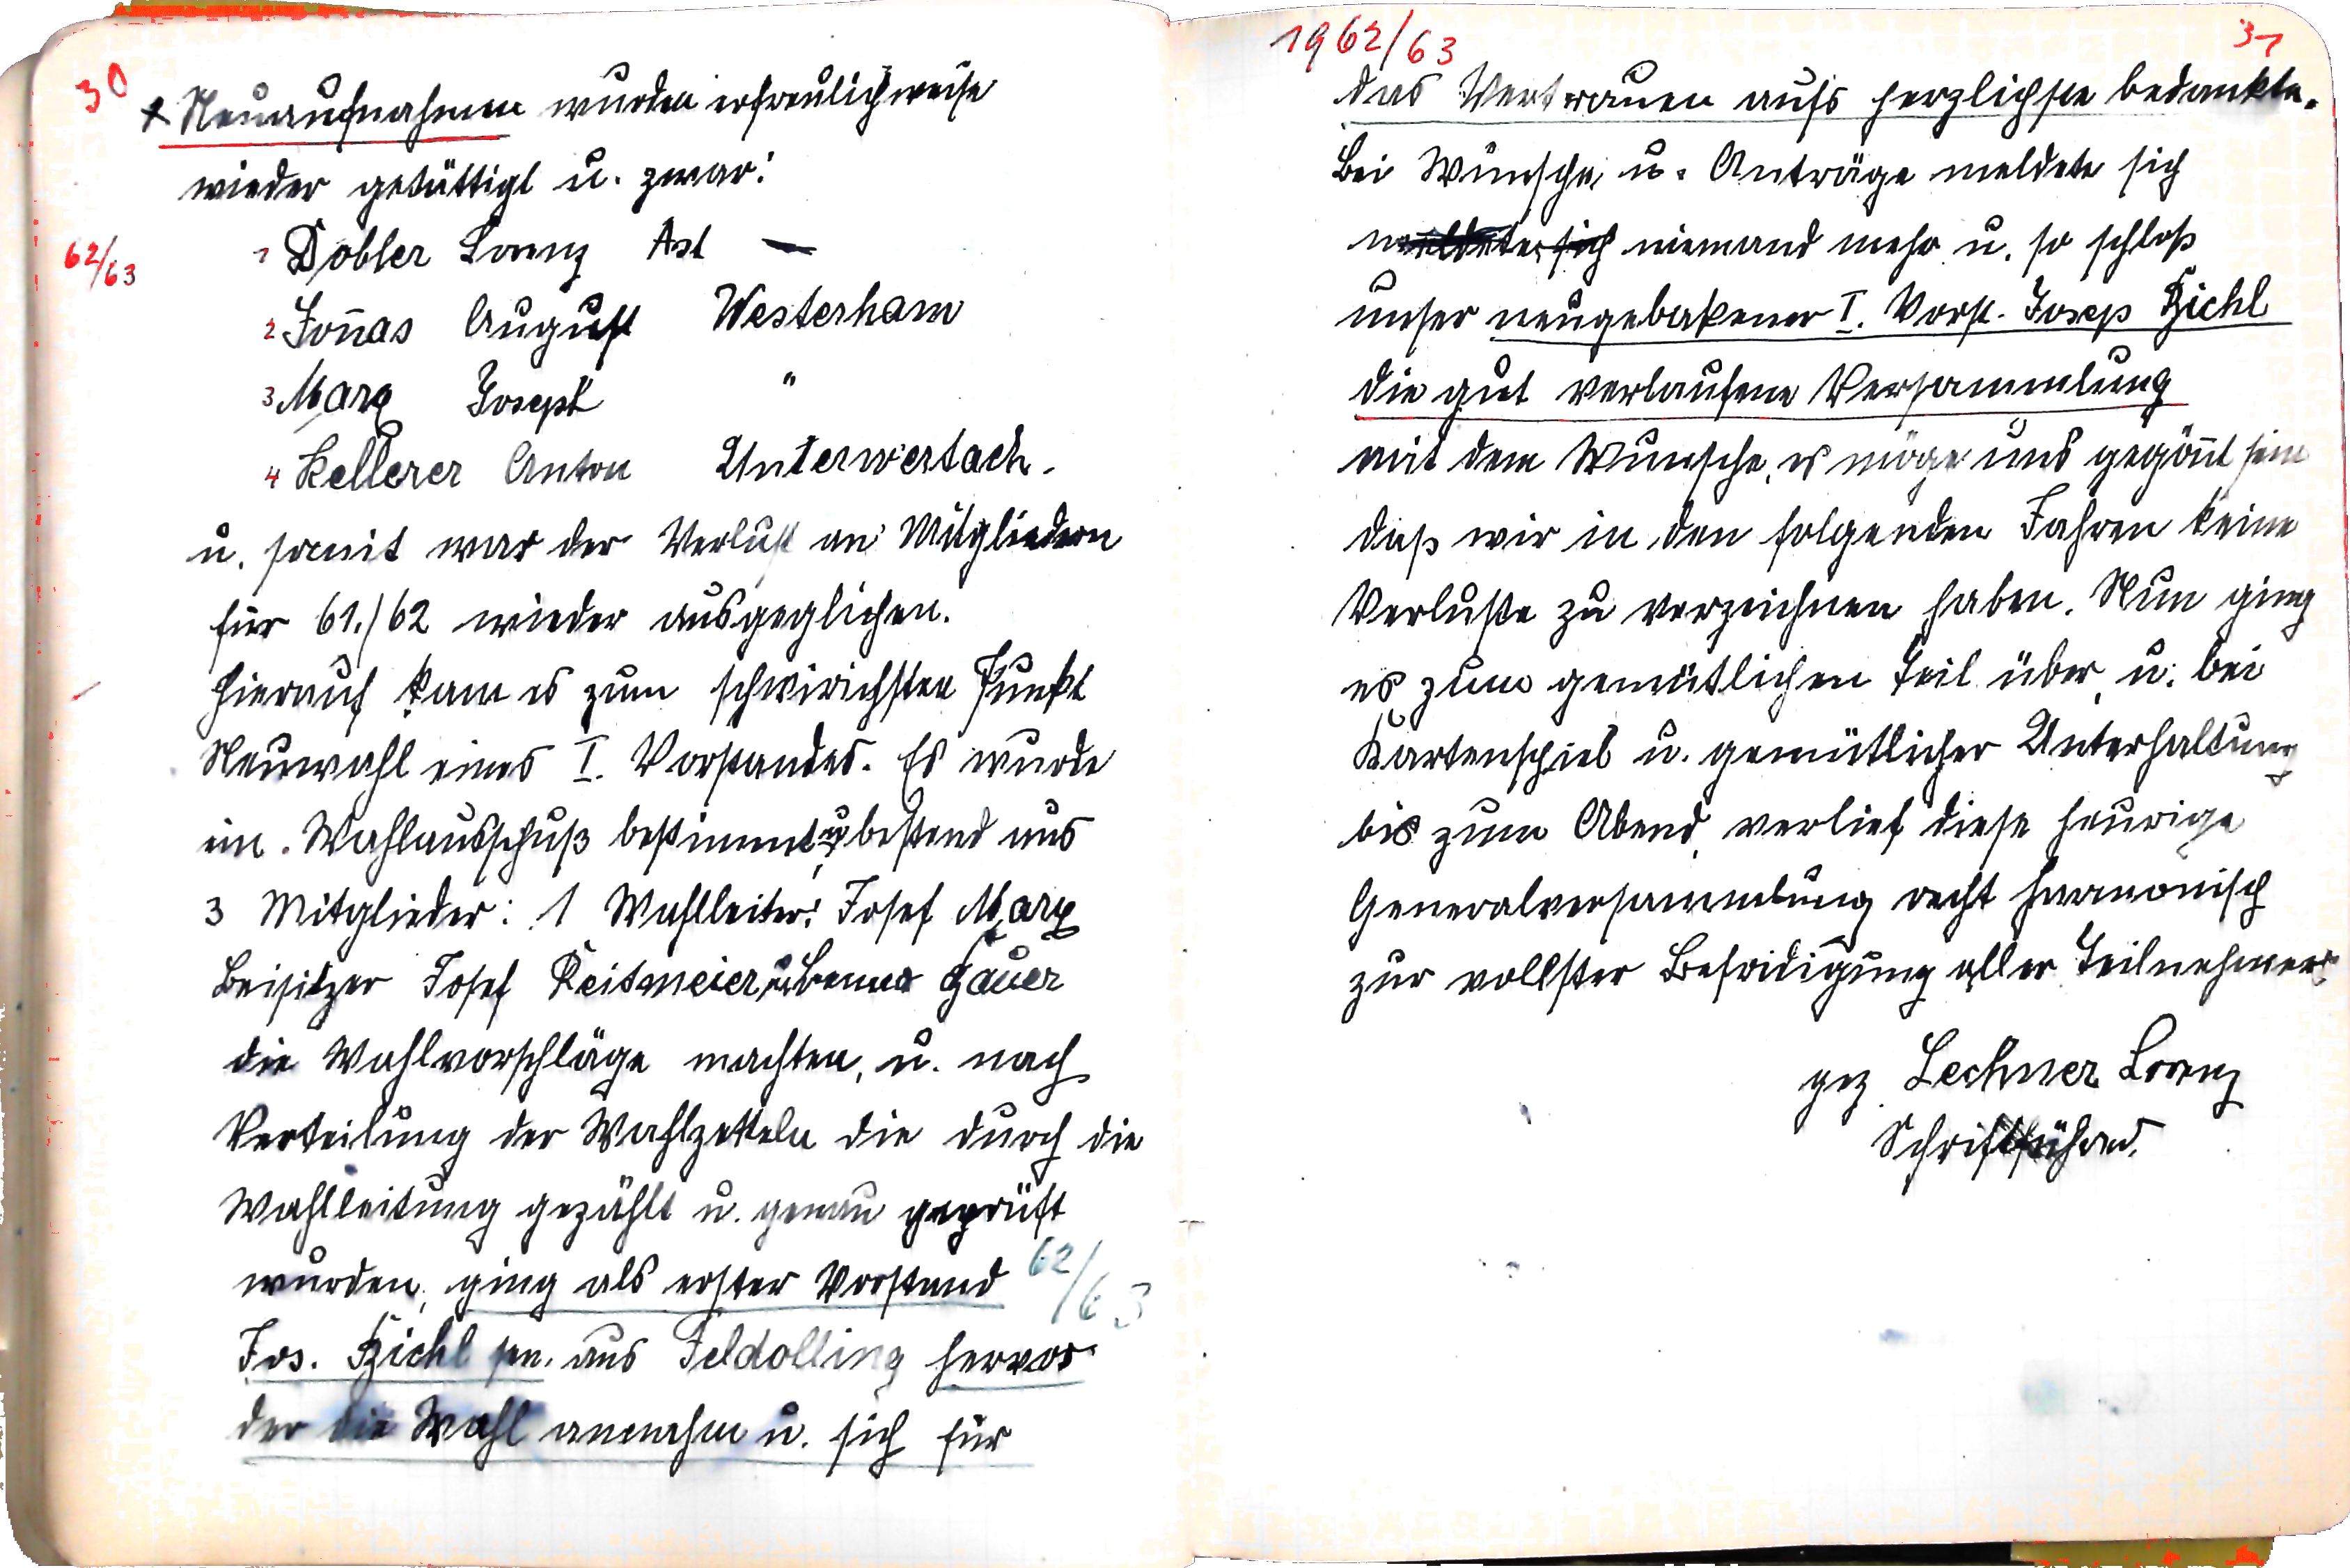 30
* Neuaufnahmen wurden erfreulichweise
wieder getättigt u. zwar:
62/63
1 Dobler Lorenz Ast —
2 Jon̄as August Westerham
3 Marx Joseph "
4 Kellerer Anton Unterwertach.
u. somit war der Verlust an Mitgliedern
für 61./62 wieder ausgeglichen.
Hierauf kam es zum schwirichsten Punkt
Neuwahl eines I. Vorstandes. Es wurde
ein Wahlausschuß bestimmt u. bestend aus
3 Mitglieder: 1 Wahlleiter: Josef Marx
Beisitzer Josef Reitmeier u. Benno Hauer
die Wahlvorschläge machten, u. nach
Verteilung der Wahlzetteln die durch die
Wahlleitung gezählt u. genau geprüft
wurden, ging als erster Vorstand 62/63
Jos. Bichl sen. aus Feldolling hervor
der die Wahl annahm u. sich für
1962/63
31
das Vertrauen aufs herzlichste bedankte.
Bei Wünsche u. Anträge meldete sich
meldete sich niemand mehr u. so schloß
unser neugebakener I. Vorst. Josep Bichl
die gut verlaufene Versammlung
mit dem Wunsche, es möge uns gegön̄t sein
daß wir in den folgenden Jahren keine
Verluste zu verzeichnen haben. Nun ging
es zum gemütlichen Teil über, u. bei
Kartenspiel u. gemütlicher Unterhaltung
bis zum Abend, verlief diese heurige
Generalversammlung recht harmonisch
zur vollster Befridigung aller Teilnehmer.
gez. Lechner Lorenz
Schriftführer.